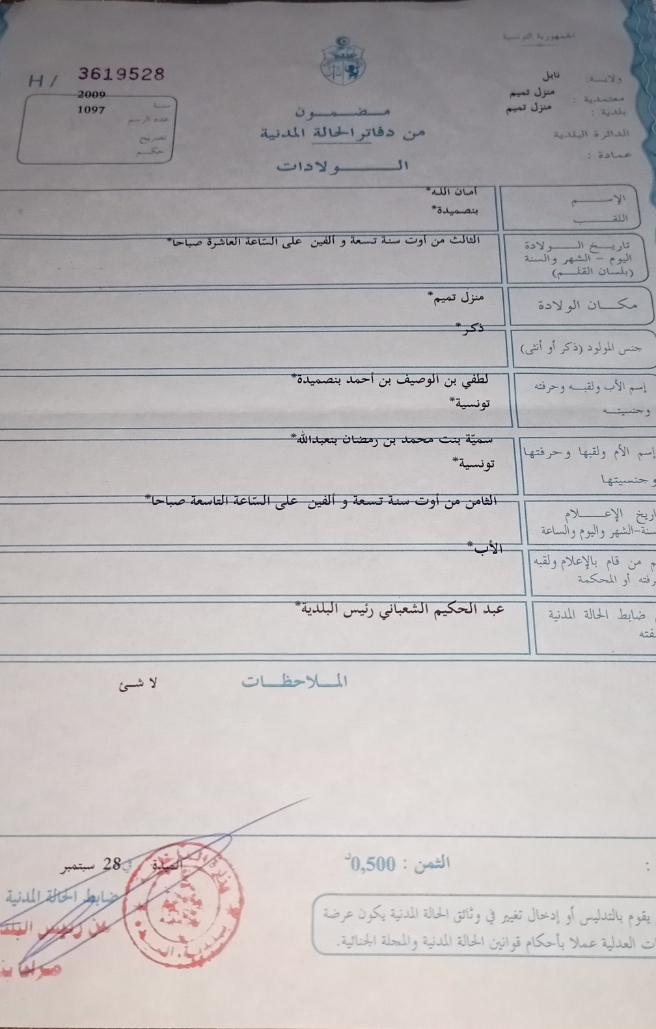 الجمهورية التونسية
H / 3619528
ولاية: نابل
معتمدية : منزل تميم
بلدية : منزل تميم
الدائرة البلدية
عمادة :
سنة 2009
عدد الرسم 1097
تصريح
حكم
مضمون
من دفاتر الحالة المدنية
الولادات
الإسم أمان الله*
اللقب بنصميدة*
تاريخ الولادة
اليوم – الشهر والسنة
(بلسان القلم)
الثالث من أوت سنة تسعة و ألفين على الساعة العاشرة صباحا*
مكان الولادة منزل تميم*
جنس المولود (ذكر أو أنثى) ذكر*
إسم الأب ولقبه وحرفته لطفي بن الوصيف بن أحمد بنصميدة*
وجنسيته تونسية*
إسم الأم ولقبها وحرفتها سميّة بنت محمد بن رمضان بنعبدالله*
وجنسيتها تونسية*
الإعلام
الشهر واليوم والساعة
الثامن من أوت سنة تسعة و ألفين على الساعة التاسعة صباحا*
من قام بالإعلام ولقبه الأب*
أو المحكمة
ضابط الحالة المدنية عبد الحكيم الشعباني رئيس البلدية*
الملاحظات
لا شئ
الثمن : 0,500د
في 28 سبتمبر
ضابط الحالة المدنية
عن رئيس
يقوم بالتدليس أو إدخال تغيير في وثائق الحالة المدنية يكون عرضة
العدلية عملا بأحكام قوانين الحالة المدنية والمجلة الجنائية.